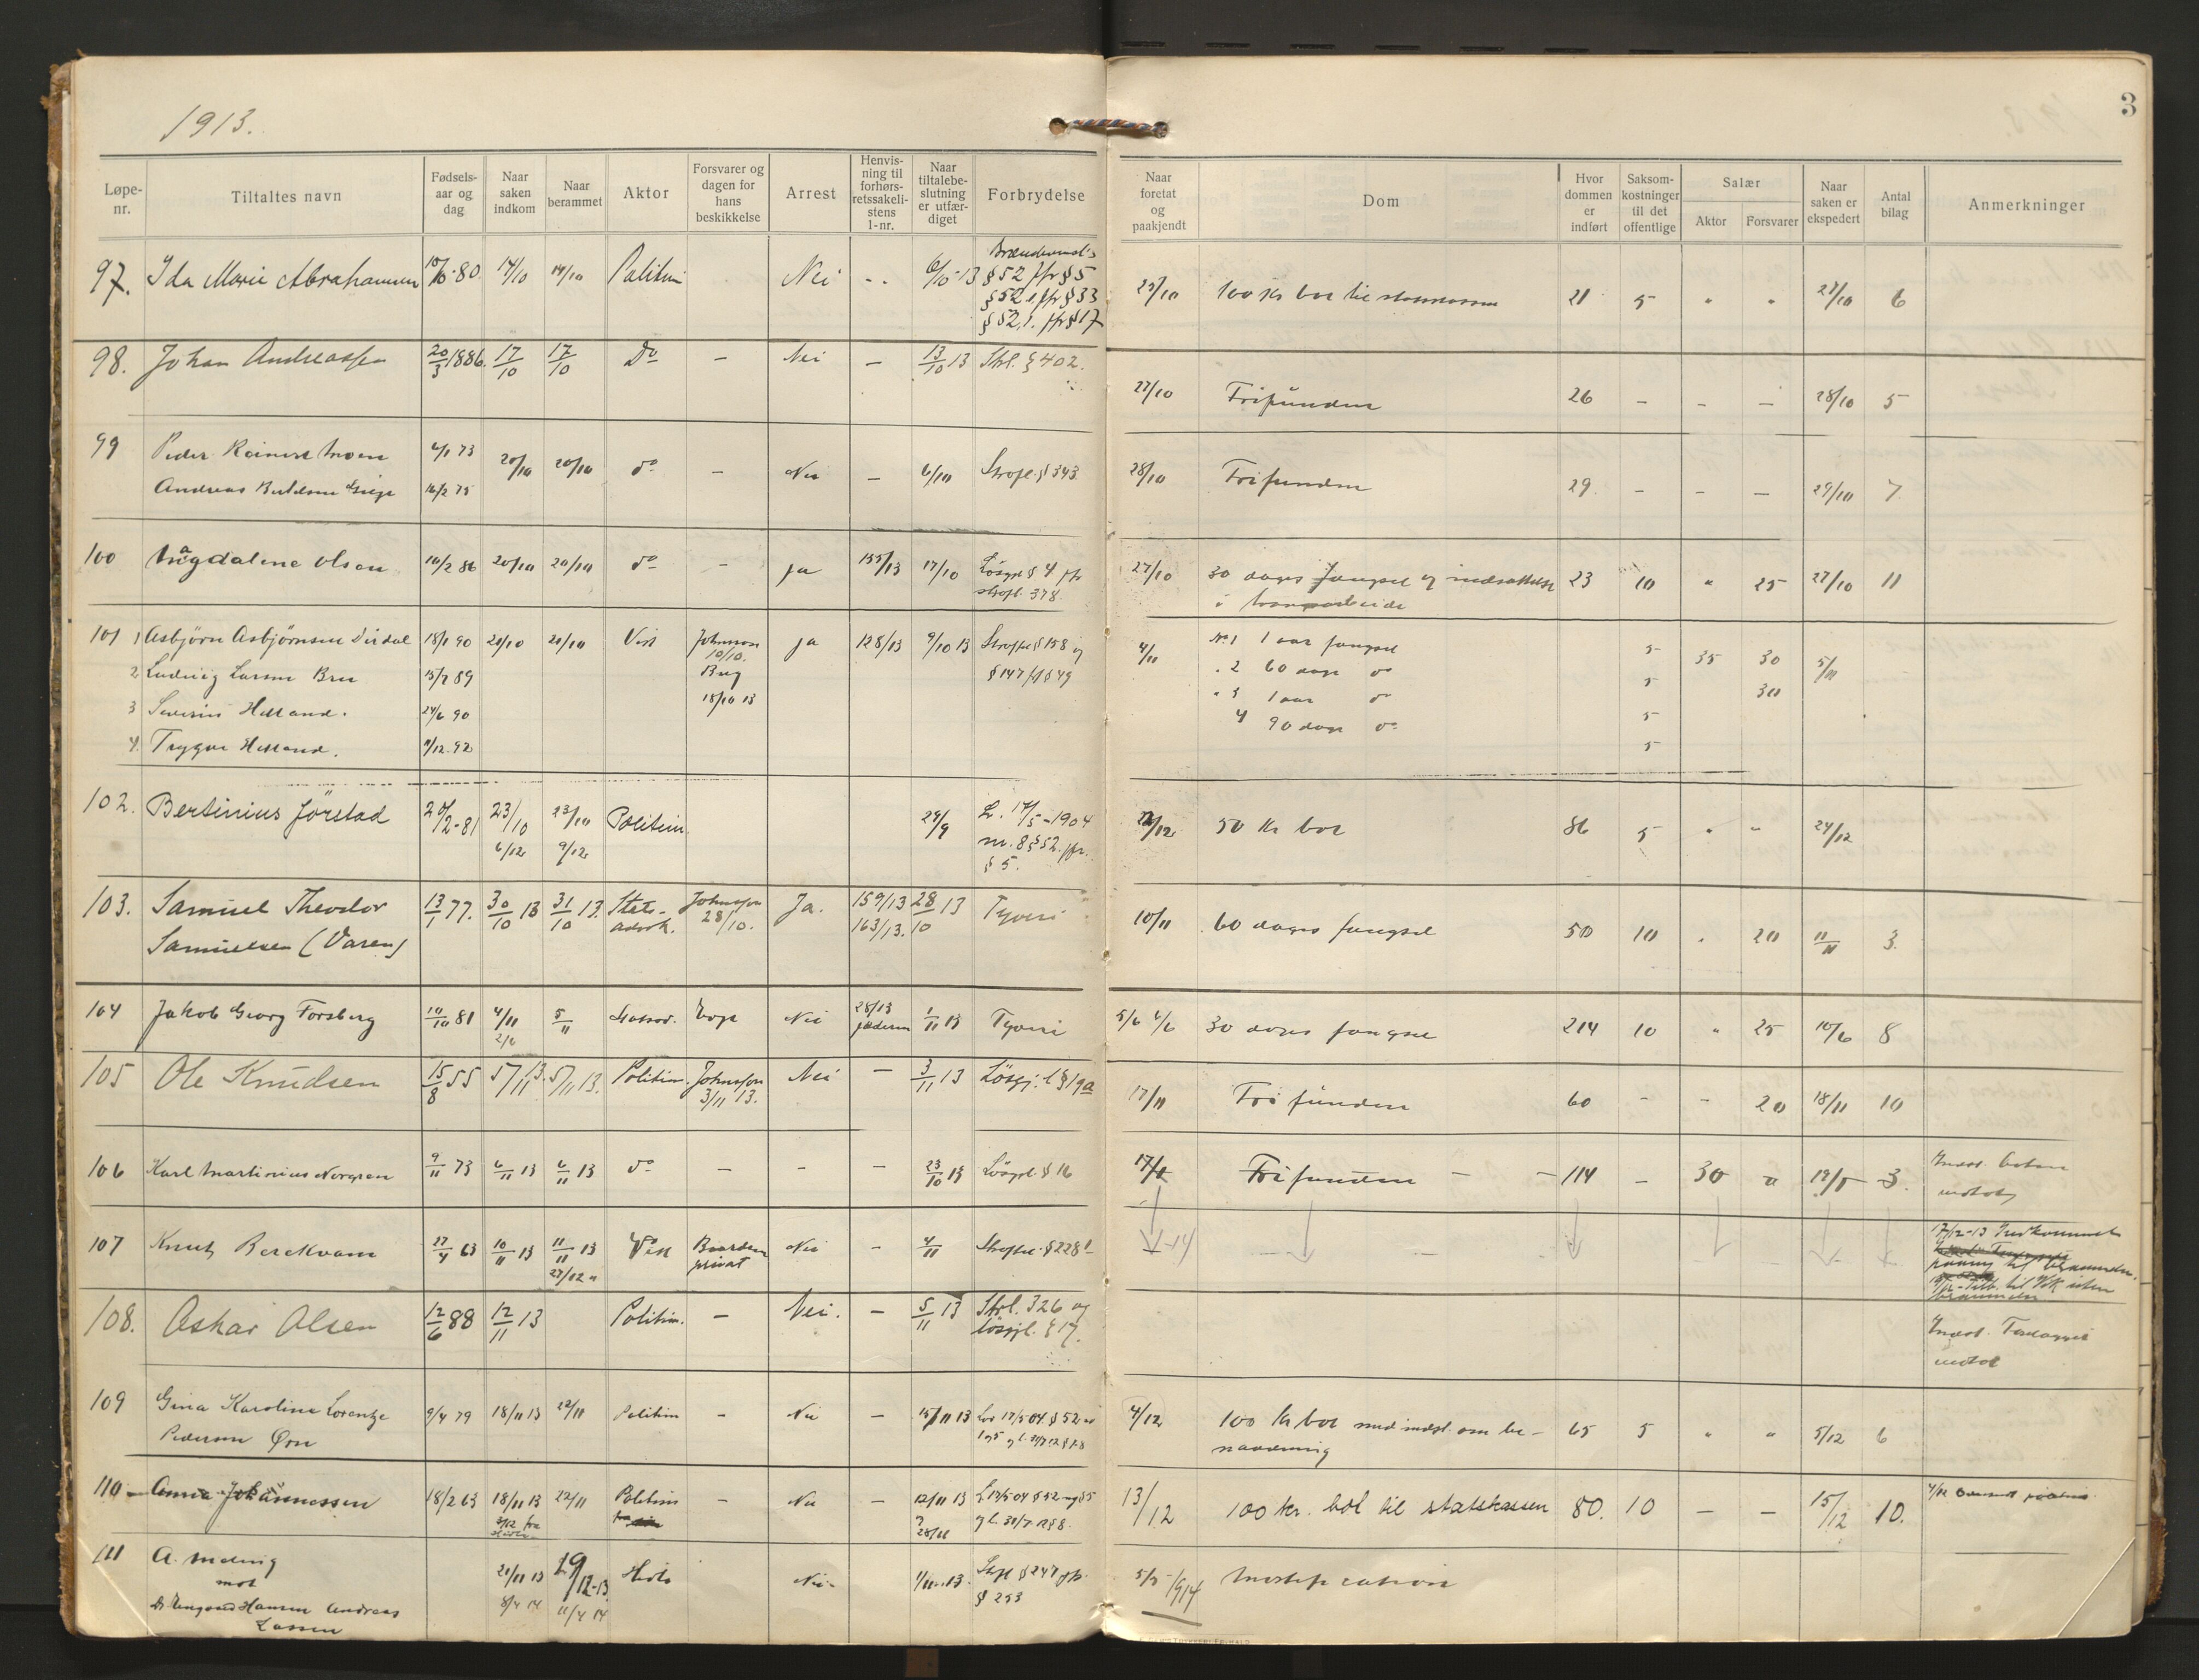 1913.
3
Løpe-nr.
Tiltaltes navn
Fødsels-aar og dag
Naar saken indkom
Naar berammet
Aktor
Forsvarer og dagen for hans beskikkelse
Arrest
Henvisning til forhørsretssakelistens l-nr.
Naar tiltalebeslutning er utfærdiget
Forbrydelse
Naar foretat og paakjendt
Dom
Hvor dommen er indført
Saksomkostninger til det offentlige
Salær
Aktor
Forsvarer
Naar saken er ekspedert
Antal bilag
Anmerkninger
97. Ida Marie Abrahamsen 14/10 14/10 Politim Nei 6/10-13 § 52 jfr § 5
§ 52 jfr § 33
§ 52, 1. jfr § 17
27/10 100 kr bot til statskassen 21 5 " " 27/10 6
98. Johan Andreassen 20/3 1886. 17/10 17/10 Do – Nei – 13/10 13 Strl. § 402. 27/10 Frifunden 26 – – – 28/10 5
99 Peder Reinert Moen 4/1 73 20/10 20/10 do – Nei – 6/10 Strafl. § 343 28/10 Frifunden 29 – – – 29/10 7
Andreas Bertelsen 16/2 75
100 Magdalene Olsen 10/2 86 20/10 20/10 do – ja 155/13 17/10 Løsgl § 4 jfr
strafl. 378.
27/10 30 dages fængsel og indsættelse 23 10 " 25 27/10 11
i tvangsarbeide
101 1 Asbjørn Asbjørnsen Dirdal 18/1 90 20/10 20/10 Vist Johnson 10/10. ja 128/13 9/10 13 § 158 og
§ 147 jf § 49
2 Ludvig Larsen Bru 15/7 89 Bug
18/10 13
3 Severin Helland. 24/6 90
4. Trygve Helland. 9/12.92
4/11 No. 1 1 aar fængsel 5 35 30 5/11
" 2 60 dage do 5 30
" 3 1 aar do 5
4 90 dage do 5
102. Bertinius Jørstad 20/2-81 23/10 23/10 Politim. 29/9 L. 17/5-1904
6/12 9/12 nr. 8 § 52 jfr.
§ 5.
22/12 50 kr bot 86 5 " " 24/12
103. Samuel Theodor 13/1 77. 30/10 13 31/10 13. Stats- Johnson Ja. 159/13 28/10 13 Tyveri
Samuelsen (Varen) advok. 28/10. 163/13.
10/11 60 dages fængsel 50 10 " 20 11/11 3
104 Jakob Georg Forsberg 10/10 81 4/11 5/11 Statsad. Nei 28/13 1/11 13 Tyveri
2/6
5/6 6/6 30 dages fængsel 214 10 " 25 10/6 8
105 Ole Knudsen 15/8 55 5/11 13. 5/11 13. Politim. Johnson Nei – 3/11 13 Løsgj. l § 19a
3/11 13.
17/11 Frifunden 60 – – 20 18/11 10
106 Karl Martinius Norgren 9/11 73 6/11 13 6/11 13 do – – – 23/10 13 Løsgl § 16 Indst. boten
vedtat
107 Knut Berekvam 27/4 63 10/11 13 11/11 13 Vist Nei – 4/11 Strafl. § 228 1
27/12 " privat
Frifunden – – 114 – 30 3
17/12-13 Indkommet
108. Oskar Olsen 12/6 88 12/11 13 Politim. – Nei. – 5/11 13 Strl. 326 og
løsgjl. § 17. Indst. Forelægget
vedtat
109 Gina Karoline Lorentze 9/4 79 18/11 13 22/11 Politim – Nei – 15/11 13 Lov 17/5 04 § 52
Pedersen Ørn
4/12 100 kr bot med indst. om be- 65 5 " " 5/12 6
naadning
110 – Anna Johannessen 18/2 63 18/11 13 22/11 Politim – Nei – 12/11 13 L 17/5 04 § 52
13/12 100 kr. bot til statskassen 80. 10 – – 15/12 10.
111 A. Meling 21/11 13 19/12-13 Nei. 1/11.13. § 247 jfr.
mot 8/4 14 11/4 14 § 253
Hansen Andreas
Lassen
5/5-1914 Mortifikation